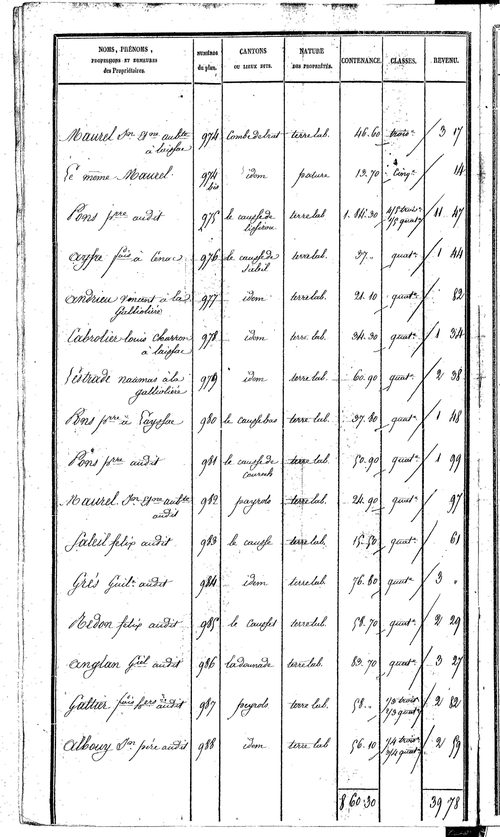 NOMS, PRÉNOMS, NUMÉROS CANTONS NATURE CONTENANCE. CLASSES. REVENU.
PROFESSIONS ET DEMEURES du plan. OU LIEUX DITS. DES PROPRIÉTÉS.
des Propriétaires.
Maurel 974 terre lab. 46.60 trois. 3 17
à laissac
Le même Maurel 974 idem pature 13.70 cinq. 14
bis
Pons pre audit 975 le causse de terre lab 1.84.30 4/5 trois. 11 47
1/5 quat.
976 le causse de terre lab. 37.. quat. 1 44
andrieu vincent à la 977 idem terre lab. 21.10 quat. 82
Galtiolière
Cabrolier louis charron 978 idem terre lab. 34.30 quat. 1 34
à laissac
Lestrade à la 979 idem terre lab. 60.90 quat. 2 38
galtiolière
Pons pre à Layssac 980 le causse bas terre lab. 37.80 quat. 1 48
Pons pre audit 981 le causse de terre lab. 50.90 quat. 1 99
Maurel 982 peyrols terre lab. 24.90 quat. 97
audit
Saleil felix audit 983 le causse terre lab. 15.50 quat. 61
Grés Guil. audit 984 idem terre lab. 76.80 quat. 3 "
Redon felix audit 985 le causses terre lab. 58.70 quat. 2 29
anglan Gil audit 986 ladounade terre lab. 83.70 quat. 3 27
Galtier fois audit 987 peyrols terre lab. 58.. 1/3 trois.
2/3 quat. 2 82
albouy Jn père audit 988 idem terre lab 56.10 1/4 trois.
3/4 quat. 2 59
8 60.30 39 78